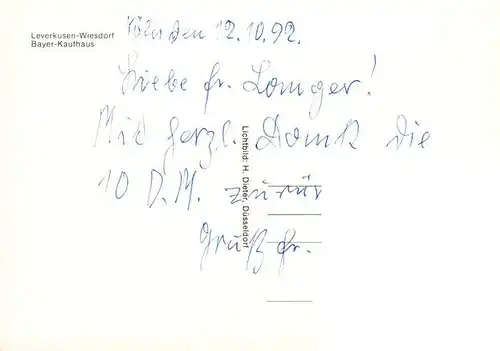 Leverkusen-Wiesdorf
Bayer-Kaufhaus
Köln den 12.10.92.
Liebe Fr. Langer!
Mit herzl. Dank die
10 D.M. zurük
Gruß Fr.
Lichtbild: H. Dieter, Düsseldorf